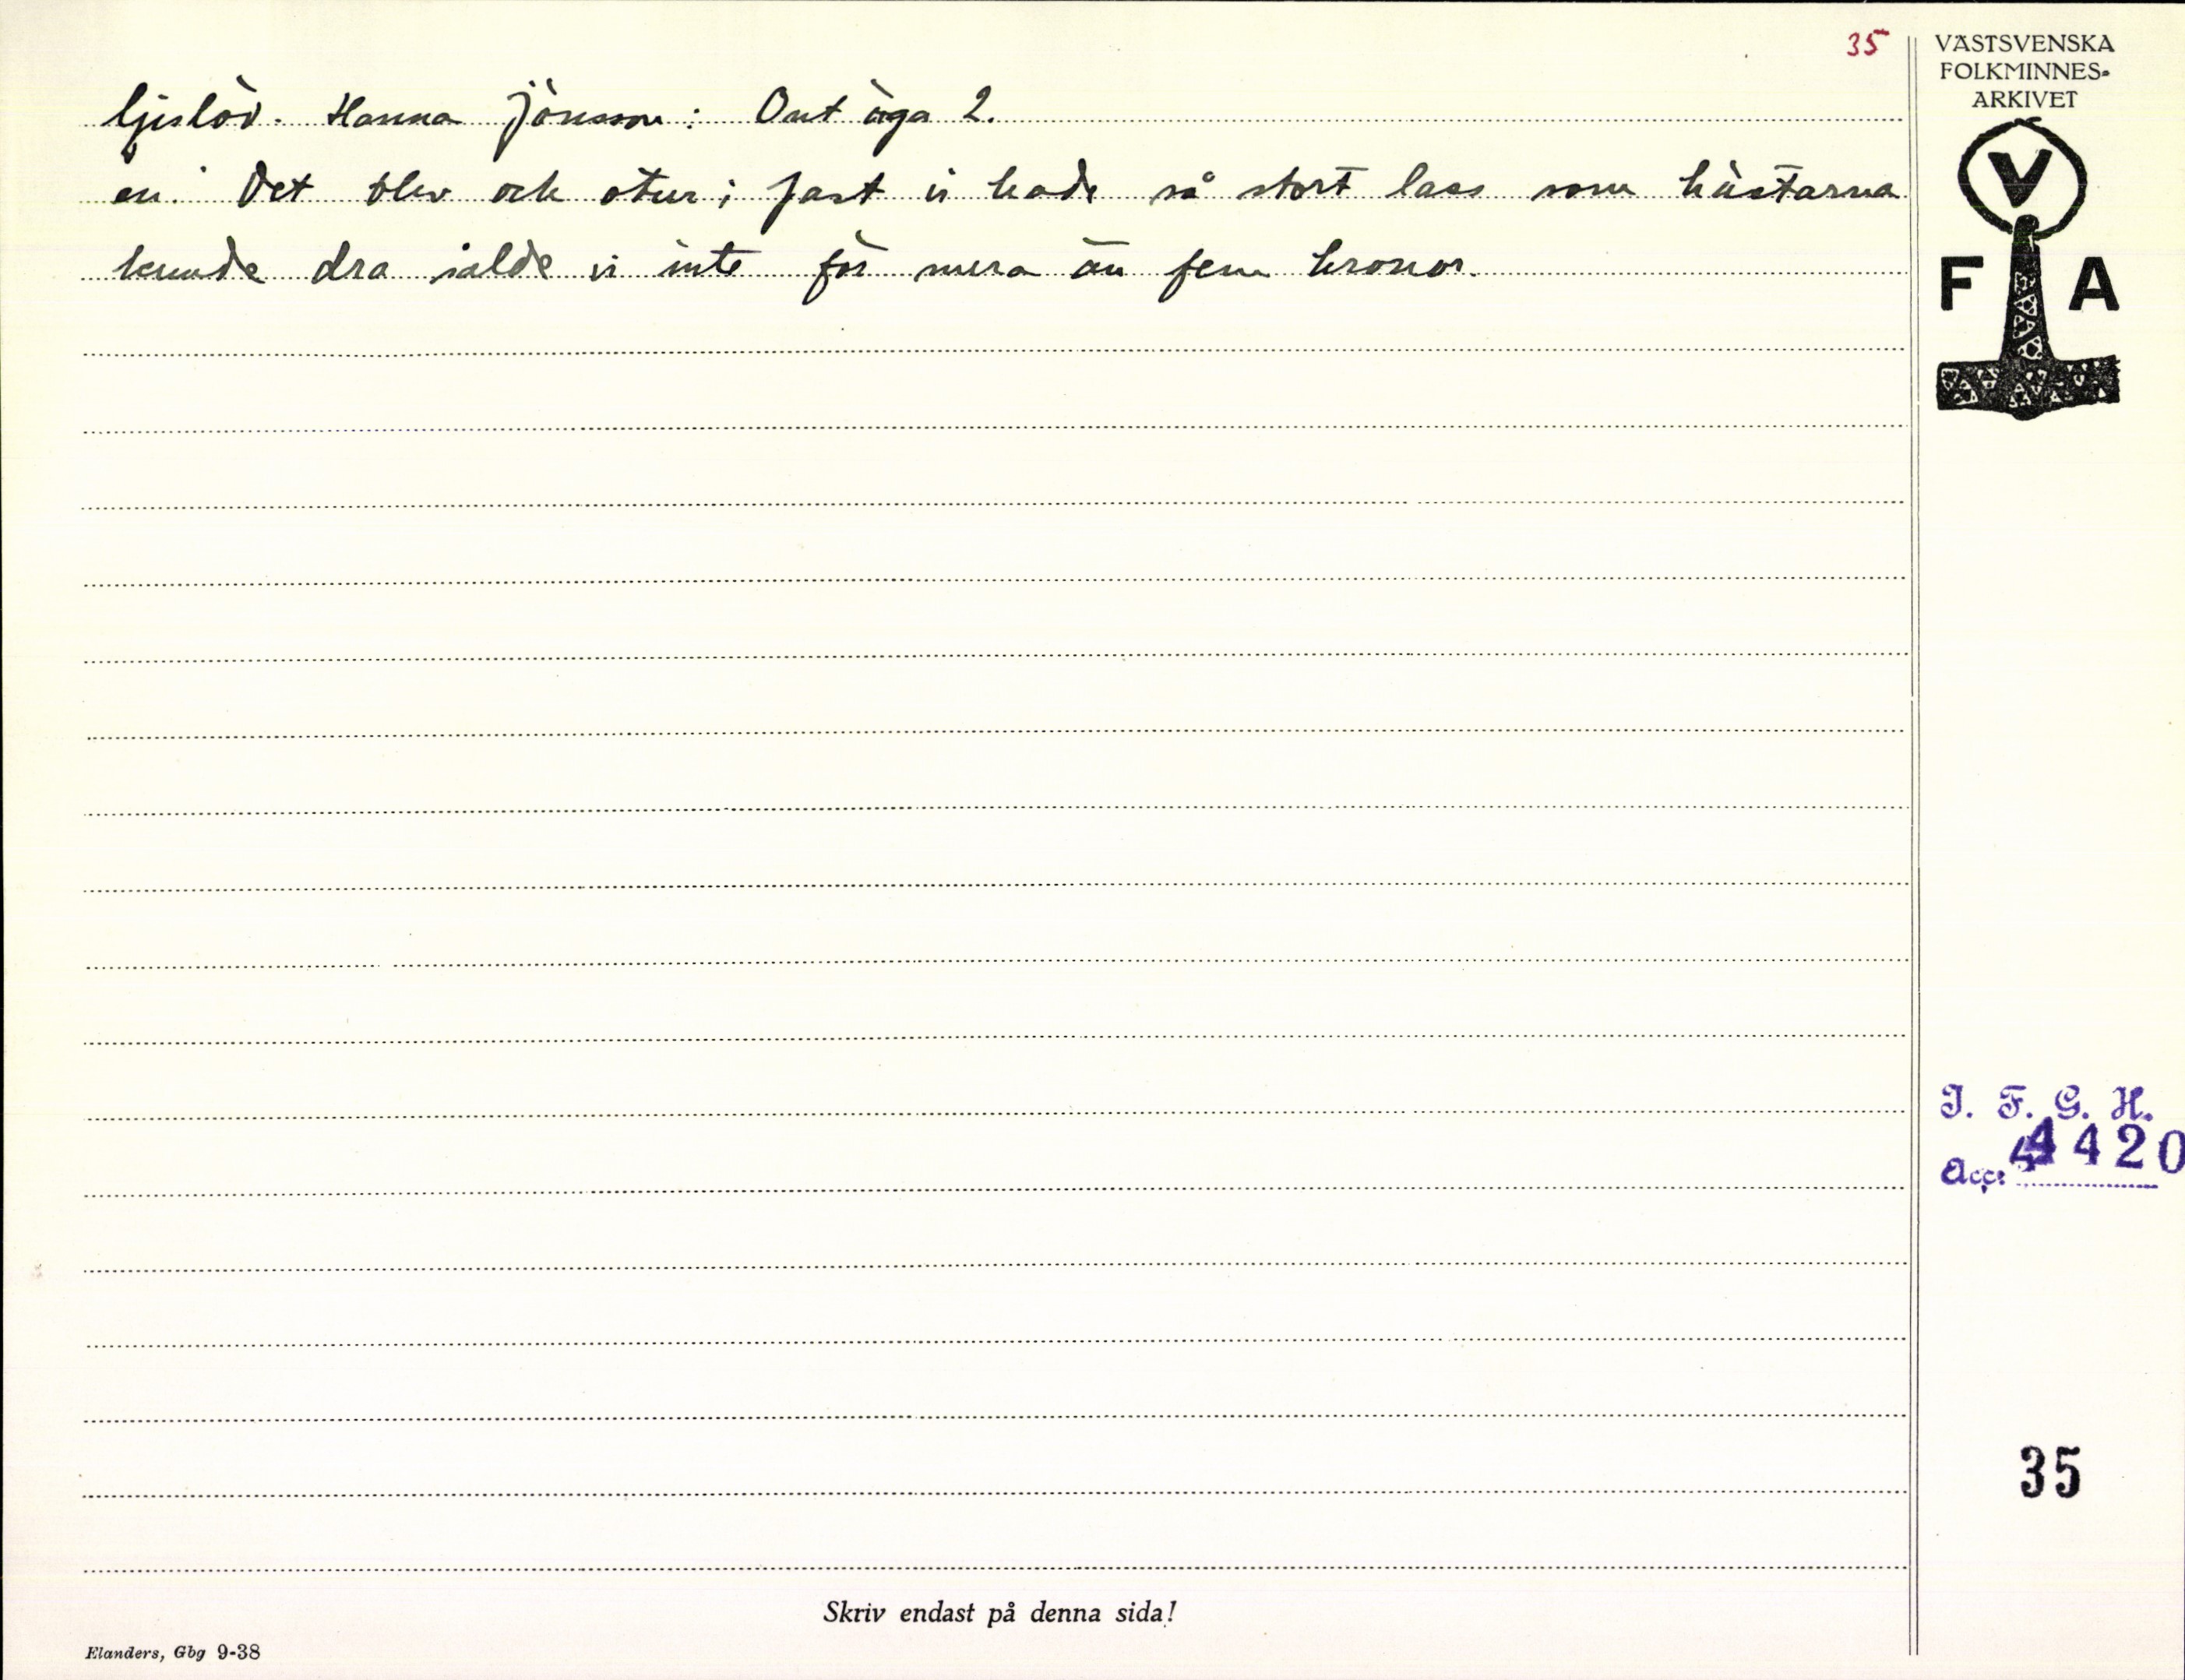 35
Gislöv. Hanna Jönsson: Ont öga 2.
en." Det blev och otur; fast vi hade så stort lass som hästarna
kunde dra sålde vi inte för mera än fem kronor.
VÄSTSVENSKA
FOLKMINNES-
ARKIVET
V
F A
I. F. G. H.
Acc: 4420
35
Skriv endast på denna sida!
Elanders, Gbg 9-38